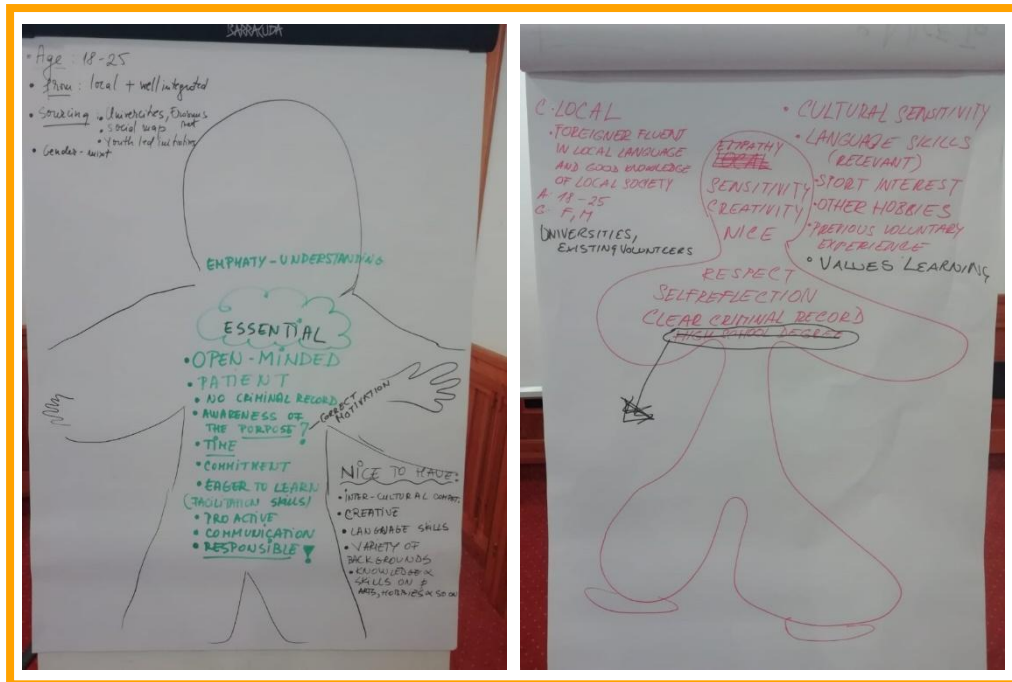 BARRACUDA
• Age: 18-25
• from: local + well integrated
• Sourcing
• Universites, Erasmus
• Social map
• Youth led initiative
• Gender-mixt
EMPHATY-UNDERSTANDING
ESSENTIAL
• OPEN-MINDED
• PATIENT
• NO CRIMINAL RECORD
• AWARENESS OF
THE PORPOSE !
CORRECT
MOTIVATION
• TIME
• COMMITMENT
• EAGER TO LEARN
(FACILITATION SKILLS)
• PRO ACTIVE
• COMMUNICATION
• RESPONSIBLE !
NICE TO HAVE:
• INTER-CULTURAL COMPET.
• CREATIVE
• LANGUAGE SKILLS
• VARIETY OF
BACKGROUNDS
• KNOWLEDGE &
SKILLS ON
ARTS, HOBBIES & SO ON
C. LOCAL
• FOREIGNER FLUENT
IN LOCAL LANGUAGE
AND GOOD KNOWLEDGE
OF LOCAL SOCIETY
A 18-25
G F, M
UNIVERSITIES,
EXISTING VOLUNTEERS
EMPATHY
LOCAL
SENSITIVITY
CREATIVITY
NICE
• CULTURAL SENSITIVITY
• LANGUAGE SKILLS
(RELEVANT)
• SPORT INTEREST
• OTHER HOBBIES
• PREVIOUS VOLUNTARY
EXPERIENCE
• VALUES LEARNING
RESPECT
SELFREFLECTION
CLEAR CRIMINAL RECORD
HIGH SCHOOL DEGREE